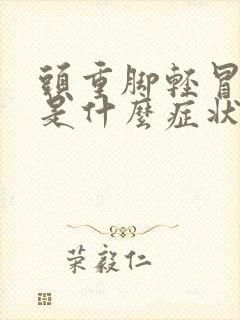 頭重脚輕冒
是什麼症状
荣毅仁